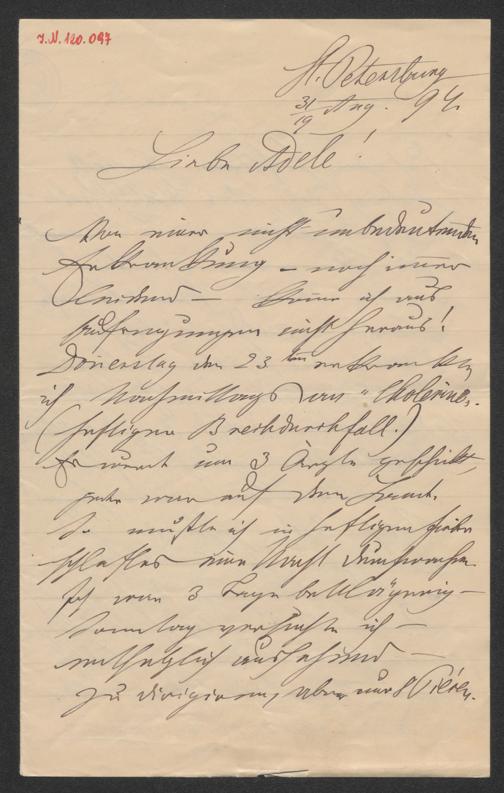 J.N. 120.097
St. Petersburg
31/19 Aug. 94.
Liebe Adele!
Von einer nicht unbedeutenden
Erkrankung – noch immer
leidend – komme ich aus
Aufregungen nicht heraus!
Donnerstag den 23ten erkrankte
ich Nachmittags an "Cholerine".
(heftigen Brechdurchfall.)
Es wurde um 3 Ärzte geschickt,
jeder war auf dem Lande.
So mußte ich in heftigen
schlaflos eine Nacht durchwachen.
Ich war 3 Tage bettlägerig –
Sonntag versuchte ich –
aussehend –
zu dirigieren, aber nur 8 Piècen.